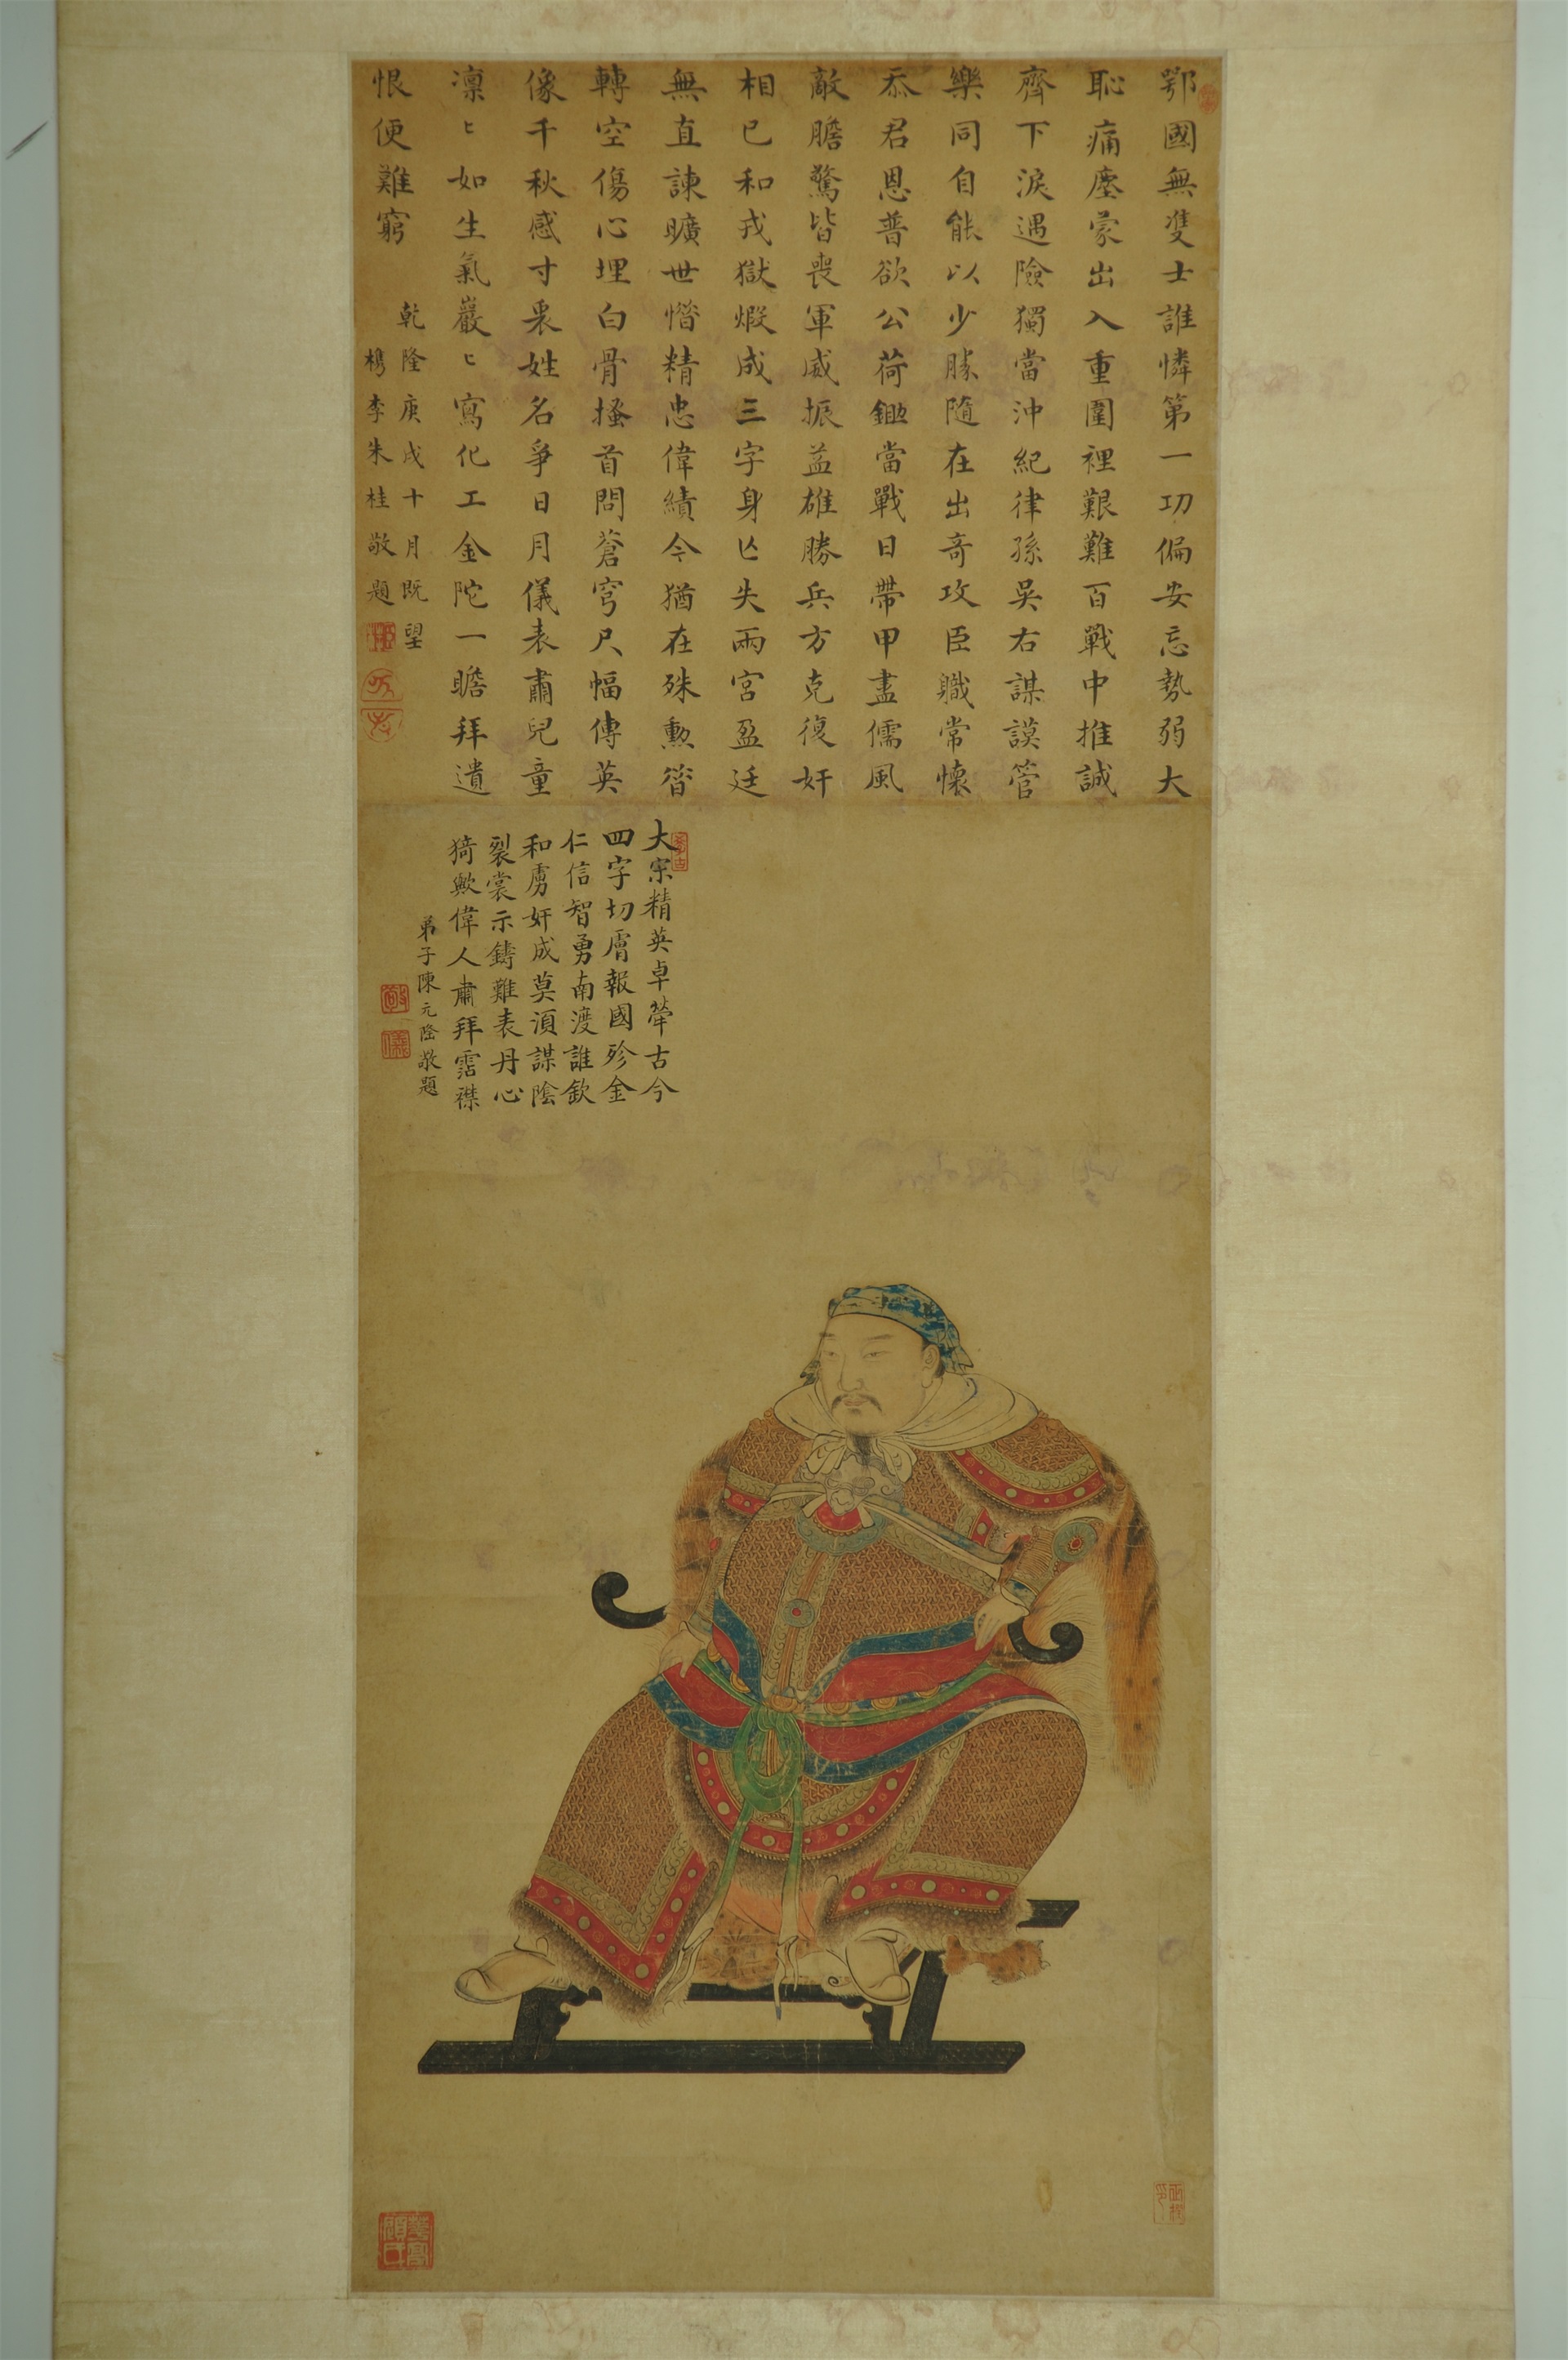 鄂國無雙士誰憐第一功偏安忘勢弱大
恥痛塵蒙出入重圍裡艱難百戰中推誠
齊下淚遇險獨當沖紀律孫吳右謀謨管
樂同自能以少勝隨在出奇攻臣職常懷
忝君恩普欲公荷鋤當戰日帶甲盡儒風
敵膽驚皆喪軍威振益雄勝兵方克復奸
相已和戎獄煆成三字身亾失兩宮盈廷
無直諫曠世憯精忠偉績今猶在殊勲
轉空傷心埋白骨搔首問蒼穹尺幅傳英
像千秋感寸衷姓名爭日月儀表肅兒童
凛〻如生氣巖〻寫化工金陀一瞻拜遺
恨便難窮
乾隆庚戌十月既望
檇李朱桂敬題
大宗精英卓犖古今
四字切膚報國殄金
仁信智勇南渡誰欽
和虜奸成莫須謀陰
裂裳示鑄難表丹心
猗歟偉人肅拜霑襟
弟子陳元隆敬題